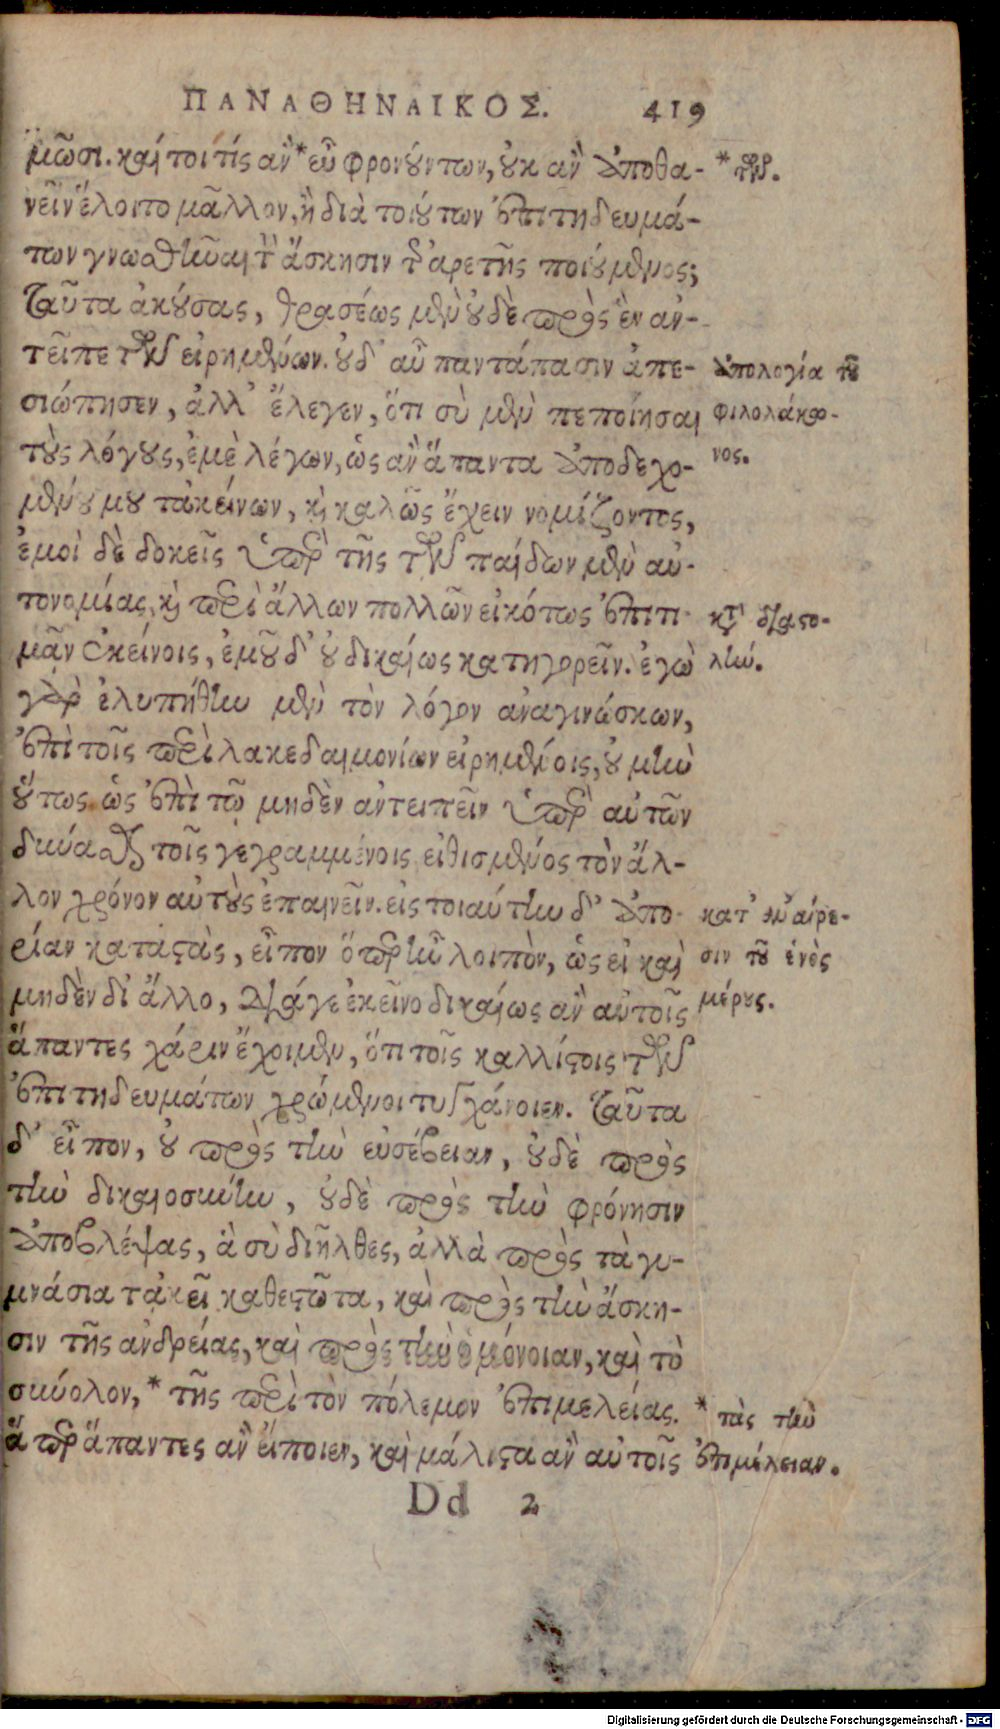 ΠΑΝΑΘΗΝΑΙΚΟΣ. 419
μῶσι. καί τοι τίς ἂν * εὖ φρονούντων, οὐκ ἂν ἀποθα- * τῶν.
νεῖν ἕλοιτο μᾶλλον, ἢ διὰ τοιούτων ἐπιτηδευμά-
των γνωσθῆναι τὴν ἄσκησιν τῆς ἀρετῆς ποιούμενος;
Ταῦτα ἀκούσας, θρασέως μὲν οὐδὲ πρὸς ἓν ἀν-
τεῖπε τῶν εἰρημένων. οὐδ' αὖ παντάπασιν ἀπε-
σιώπησεν, ἀλλ' ἔλεγεν, ὅτι σὺ μὲν πεποίησαι
τοὺς λόγους, ἐμὲ λέγων, ὡς ἂν ἅπαντα ἀποδεχο-
μένου μου τἀκείνων, καὶ καλῶς ἔχειν νομίζοντος,
ἐμοὶ δὲ δοκεῖς ὑπὲρ τῆς τῶν παίδων μὲν αὐ-
τονομίας, καὶ περὶ ἄλλων πολλῶν εἰκότως ἐπιτι-
μᾶν ἐκείνοις, ἐμοῦ δ' οὐ δικαίως κατηγορεῖν. ἐγὼ
γὰρ ἐλυπήθην μὲν τὸν λόγον ἀναγινώσκων,
ἐπὶ τοῖς περὶ λακεδαιμονίων εἰρημένοις, οὐ μὴν
οὕτως ὡς ἐπὶ τῷ μηδὲν ἀντειπεῖν ὑπὲρ αὐτῶν
δύνασθαι τοῖς γεγραμμένοις, εἰθισμένος τὸν ἄλ-
λον χρόνον αὐτοὺς ἐπαινεῖν. εἰς τοιαύτην δ' ἀπο-
ρίαν καταστὰς, εἶπον ὅπερ ἦν λοιπὸν, ὡς εἰ καὶ
μηδὲν δι' ἄλλο, διά γε ἐκεῖνο δικαίως ἂν αὐτοῖς
ἅπαντες χάριν ἔχοιμεν, ὅτι τοῖς καλλίστοις τῶν
ἐπιτηδευμάτων χρώμενοι τυγχάνοιεν. Ταῦτα
δ' εἶπον, οὐ πρὸς τὴν εὐσέβειαν, οὐδὲ πρὸς
τὴν δικαιοσύνην, οὐδὲ πρὸς τὴν φρόνησιν
ἀποβλέψας, ἃ σὺ διῆλθες, ἀλλὰ πρὸς τὰ γυ-
μνάσια τἀκεῖ καθεστῶτα, καὶ πρὸς τὴν ἄσκη-
σιν τῆς ἀνδρείας, καὶ πρὸς τὴν ὁμόνοιαν, καὶ τὸ
σύνολον, * τῆς περὶ τὸν πόλεμον ἐπιμελείας.
ἅπερ ἅπαντες ἂν εἴποιεν, καὶ μάλιστα ἂν αὐτοῖς
ἀπολογία τοῦ
φιλολάκω-
νος.
κατ' διαστο-
λήν.
κατ' ἀναίρε-
σιν τοῦ ἑνὸς
μέρους.
* πρὸς τὴν
ἐπιμέλειαν.
Dd 2
Digitalisierung gefördert durch die Deutsche Forschungsgemeinschaft - DFG